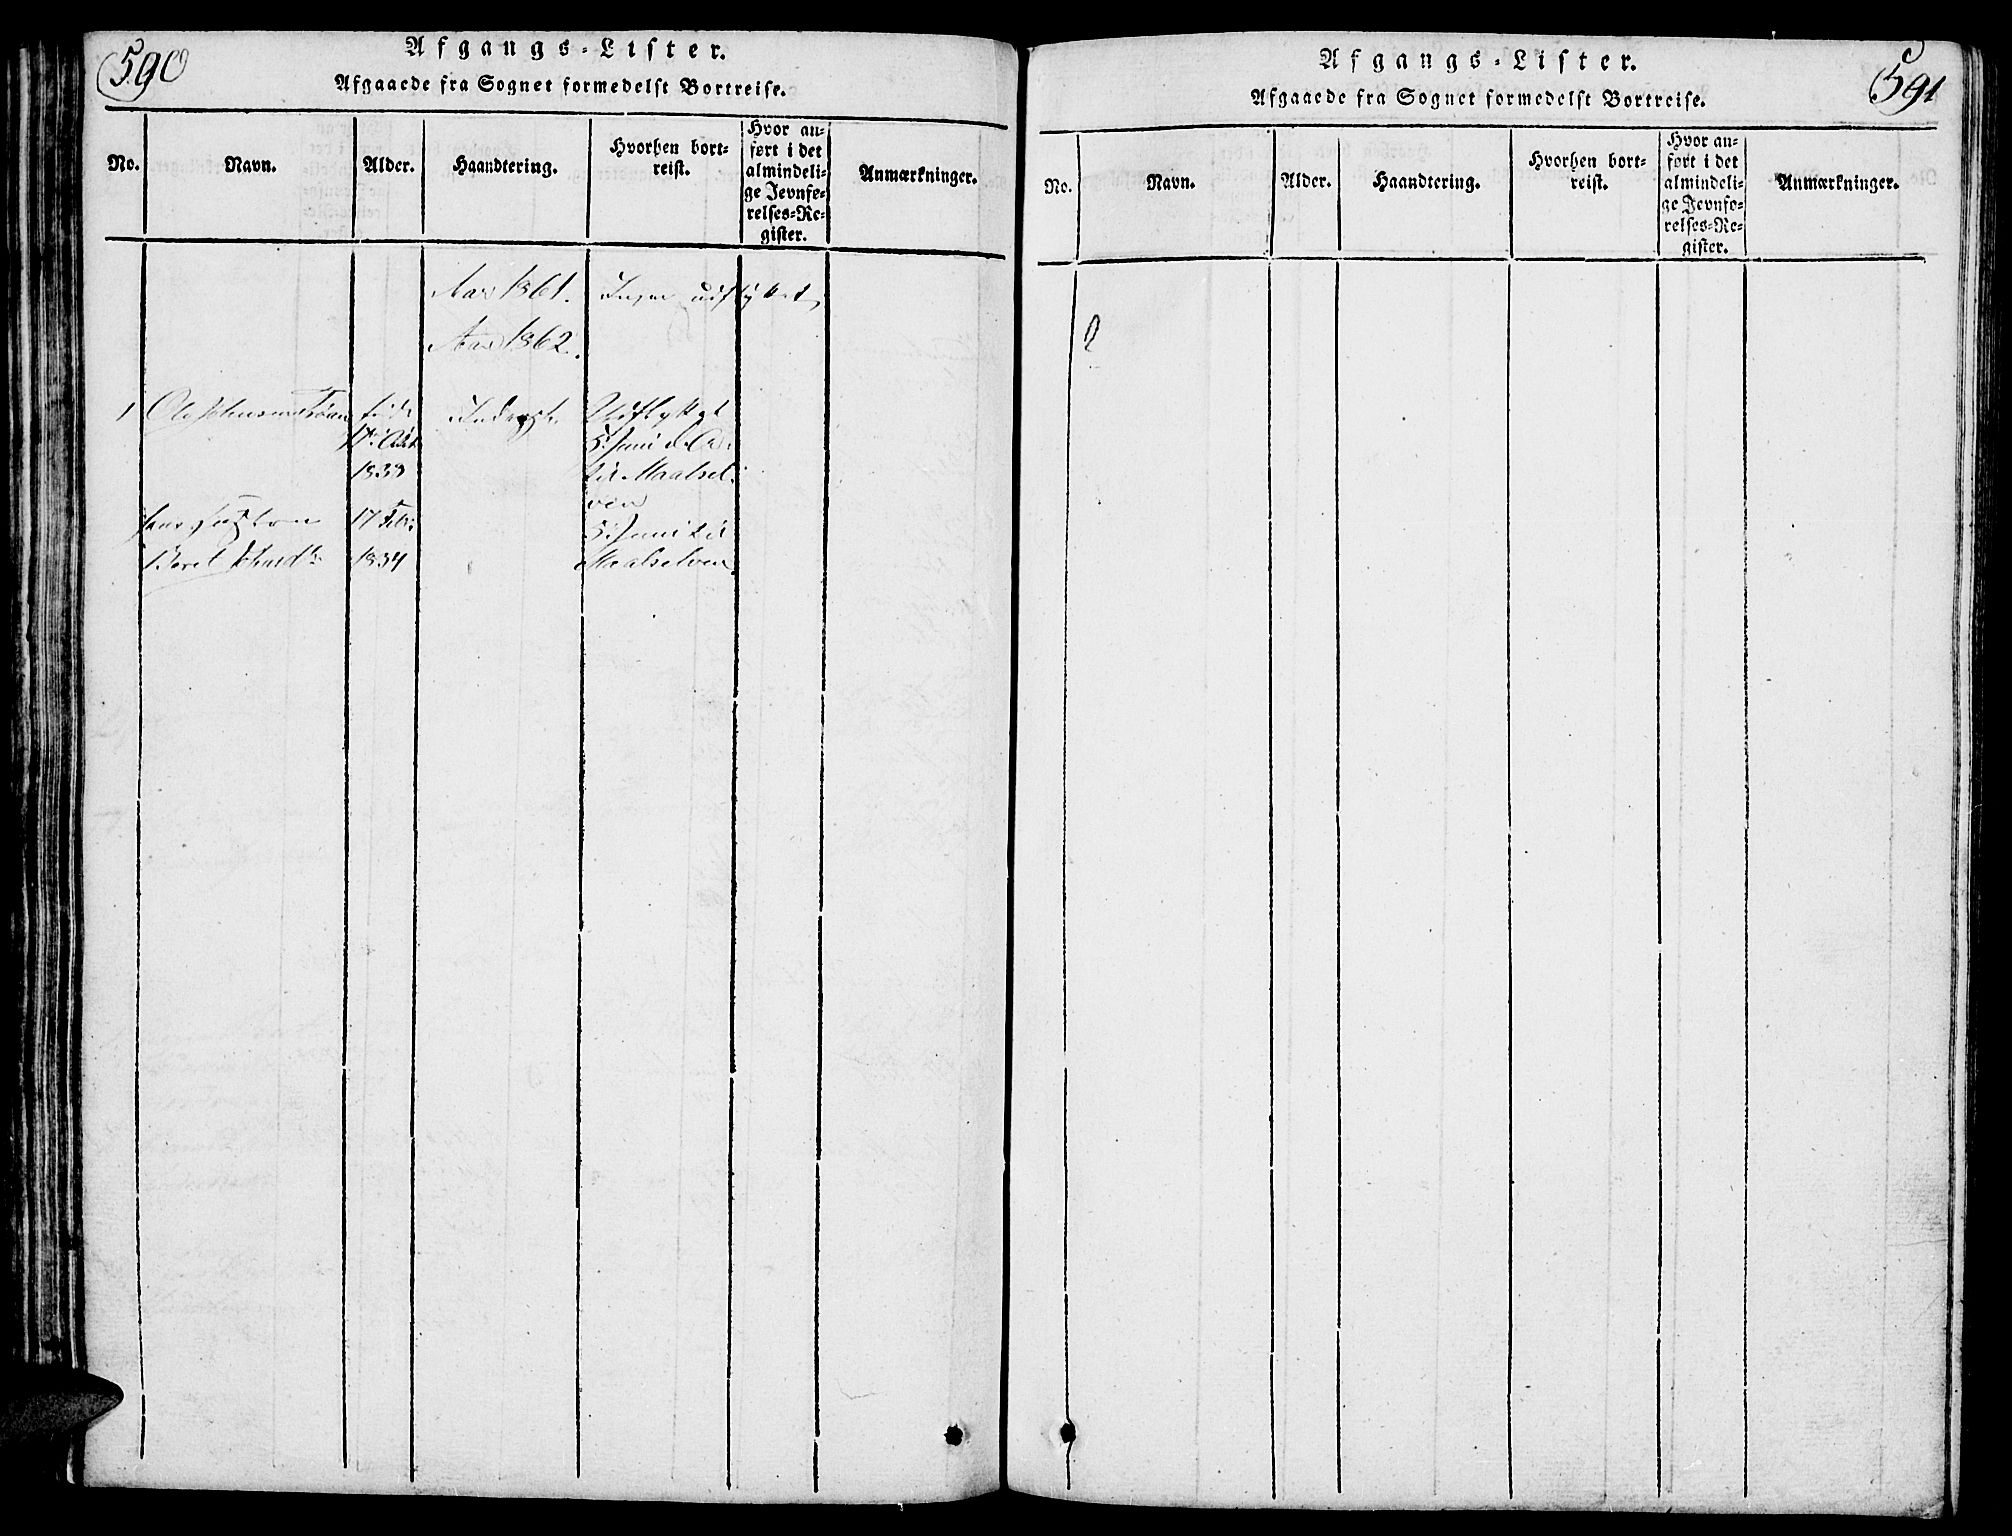 590
Afgangs-Lister.
Afgaaede fra Sognet formedelst Bortreise.
No. Navn. Alder. Haandtering. Hvorhen bortreist. Hvor anført i det almindelige Jevnførelses-Register. Anmærkninger.
Aar 1861. Ingen udflyttet
Aar 1862.
1 Ole Inderst Udflyttet
5 Juni d. A.
1833 til Maalsel
ven
17 Feb. 5 Juni til
Beret 1834 Maalselven
591
Afgangs-Lister.
Afgaaede fra Sognet formedelst Bortreise.
No. Navn. Alder. Haandtering. Hvorhen bortreist. Hvor anført i det almindelige Jevnførelses-Register. Anmærkninger.